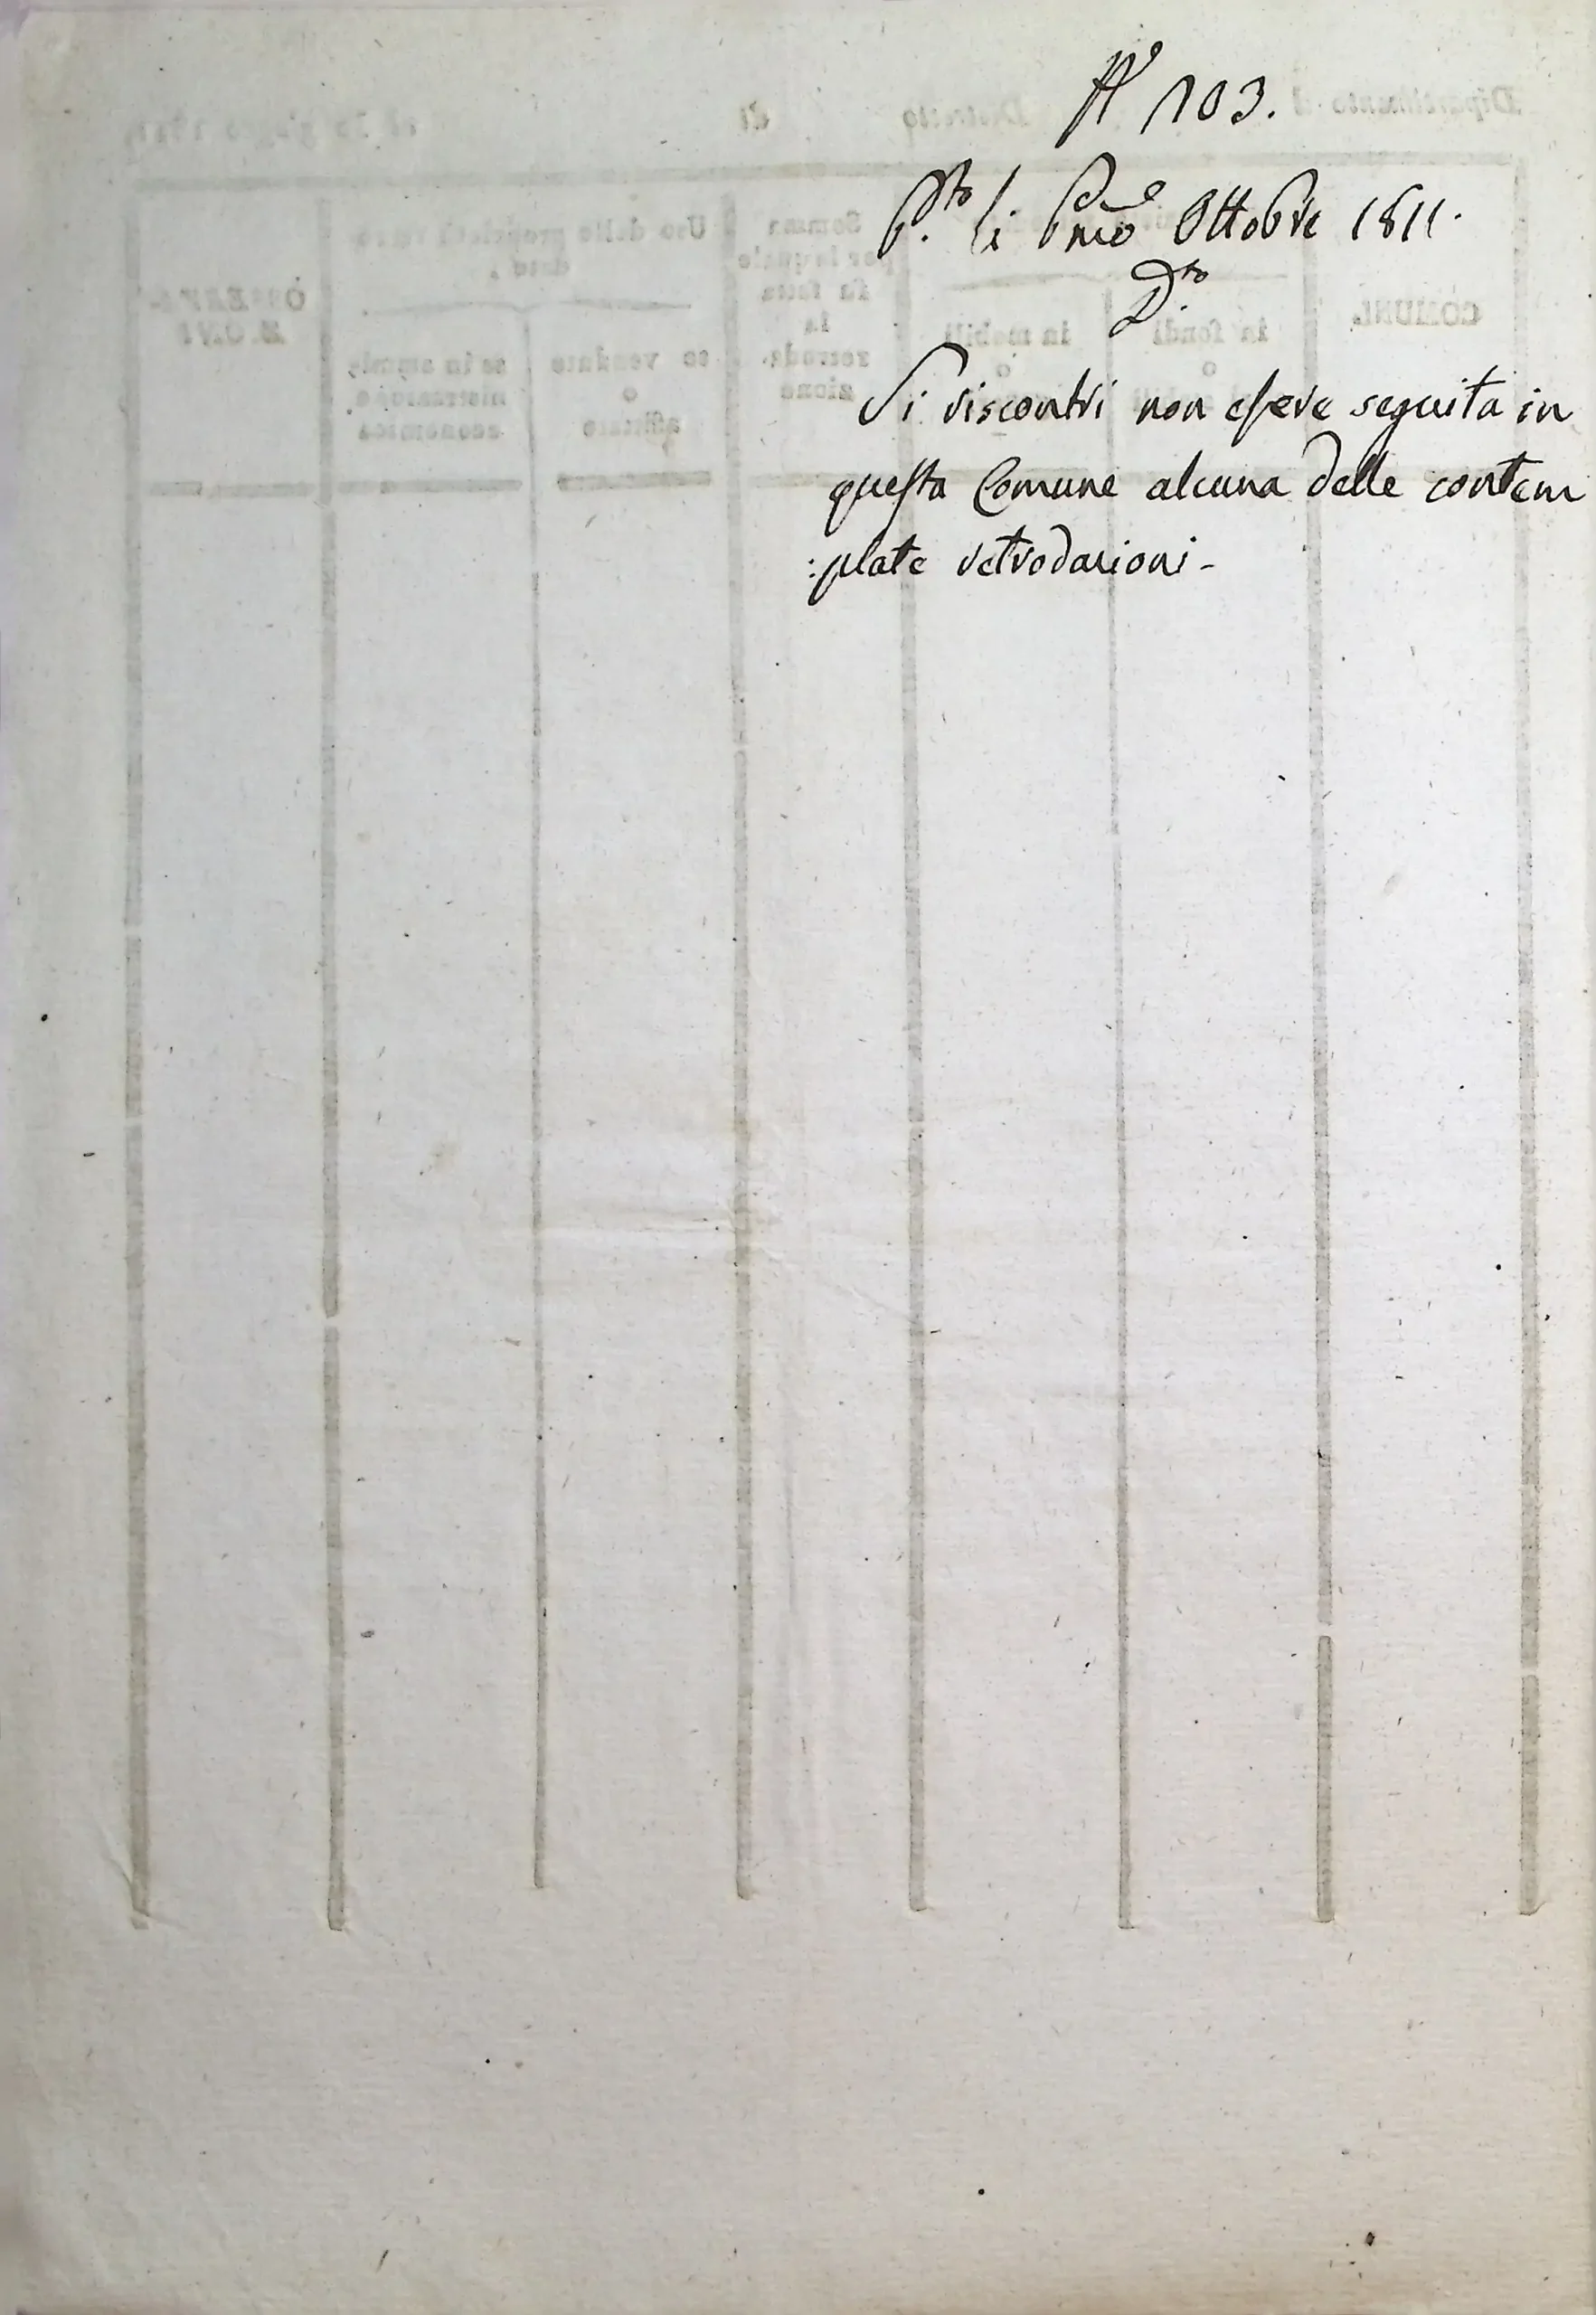 N° 103.
P.to li Primo Ottobre 1811.
D.to
Si riscontri non essere seguita in
questa Comune alcuna delle contem
:plate retrodazioni -